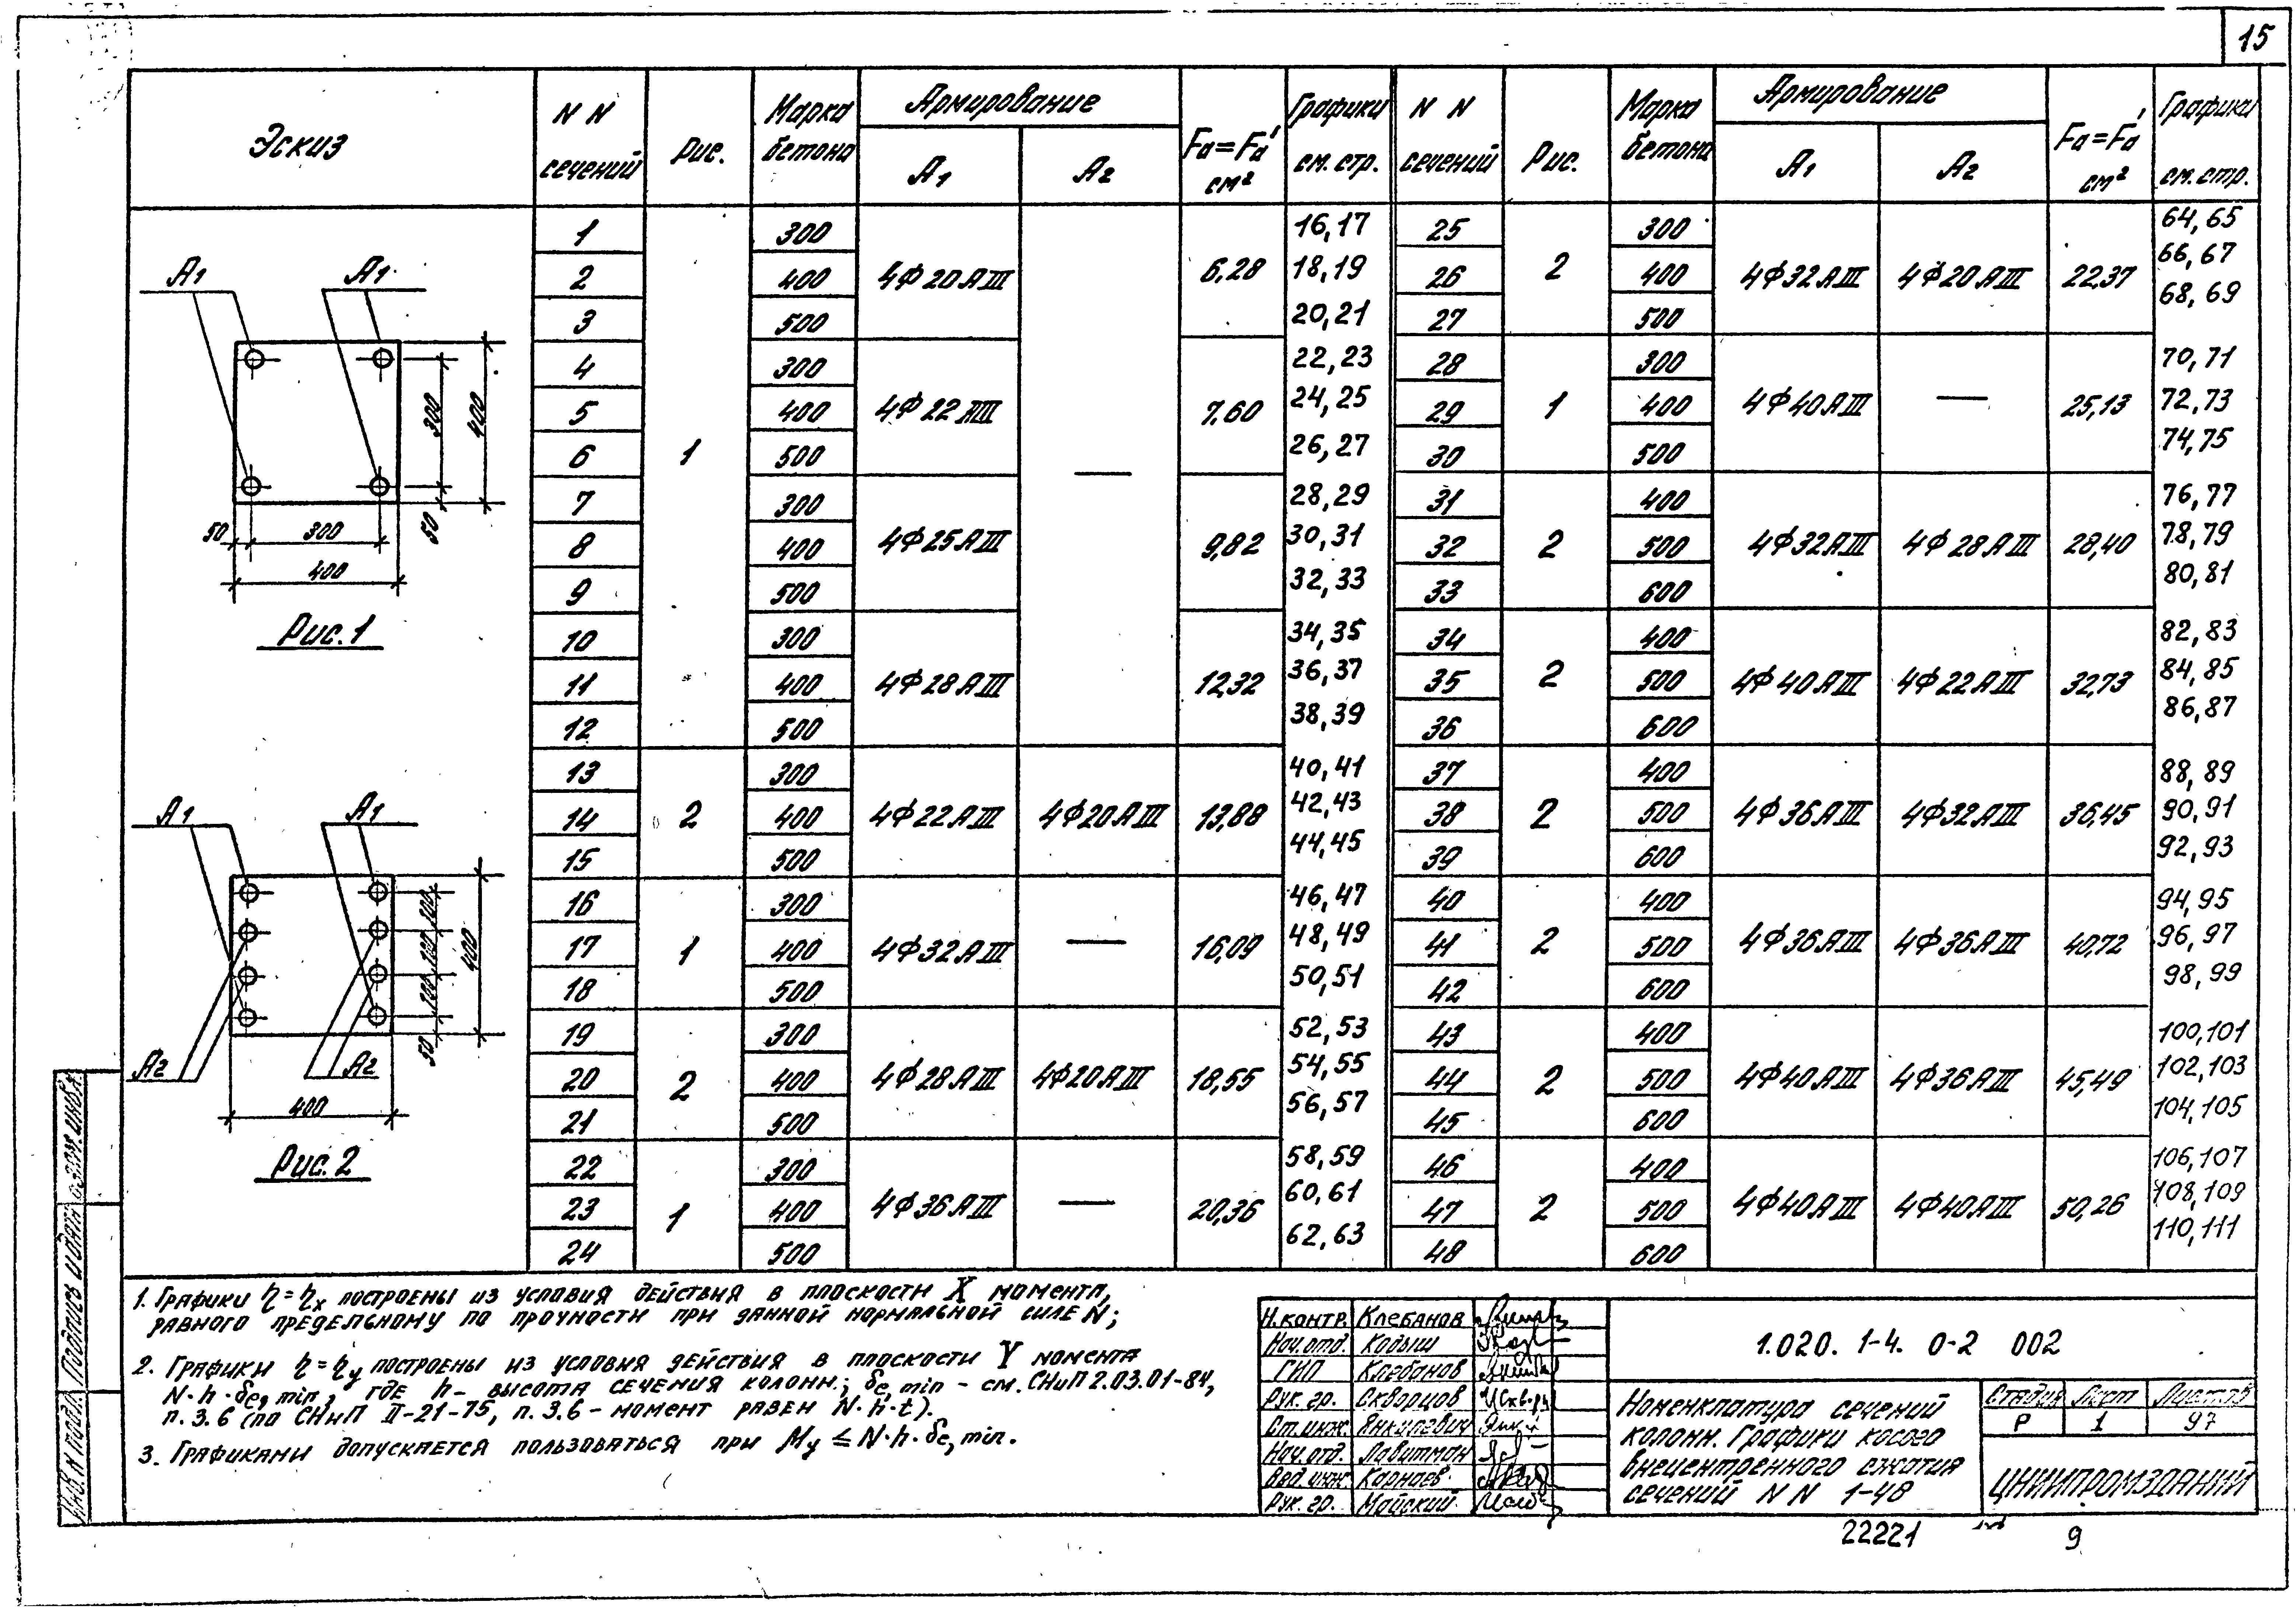 15
Эскиз
N N сечений
Рис.
Марка бетона
Армирование
A1
A2
Fa=Fa' см²
Графики см. стр.
N N сечений
Рис.
Марка бетона
Армирование
A1
A2
Fa=Fa' см²
Графики см. стр.
A1 A1
300 400
50 300 50
400
Рис. 1
A1 A1
100 100 100 50 400
A2 A2
400
Рис. 2
1 300 16,17
2 400 4Ф20АIII 6,28 18,19
3 500 20,21
4 300 22,23
5 400 4Ф22АIII 7,60 24,25
6 1 500 — 26,27
7 300 28,29
8 400 4Ф25АIII 9,82 30,31
9 500 32,33
10 300 34,35
11 400 4Ф28АIII 12,32 36,37
12 500 38,39
13 300 40,41
14 2 400 4Ф22АIII 4Ф20АIII 13,88 42,43
15 500 44,45
16 300 46,47
17 1 400 4Ф32АIII — 16,09 48,49
18 500 50,51
19 300 52,53
20 2 400 4Ф28АIII 4Ф20АIII 18,55 54,55
21 500 56,57
22 300 58,59
23 1 400 4Ф36АIII — 20,36 60,61
24 500 62,63
25 300 64,65
26 2 400 4Ф32АIII 4Ф20АIII 22,37 66,67
27 500 68,69
28 300 70,71
29 1 400 4Ф40АIII — 25,13 72,73
30 500 74,75
31 400 76,77
32 2 500 4Ф32АIII 4Ф28АIII 28,40 78,79
33 600 80,81
34 400 82,83
35 2 500 4Ф40АIII 4Ф22АIII 32,73 84,85
36 600 86,87
37 400 88,89
38 2 500 4Ф36АIII 4Ф32АIII 36,45 90,91
39 600 92,93
40 400 94,95
41 2 500 4Ф36АIII 4Ф36АIII 40,72 96,97
42 600 98,99
43 400 100,101
44 2 500 4Ф40АIII 4Ф36АIII 45,49 102,103
45 600 104,105
46 400 106,107
47 2 500 4Ф40АIII 4Ф40АIII 50,26 108,109
48 600 110,111
1. Графики η=ηx построены из условия действия в плоскости X момента,
равного предельному по прочности при данной нормальной силе N;
2. Графики η=ηy построены из условия действия в плоскости Y момента
N·h·δe,min, где h– высота сечения колонн.; δe,min – см. СНиП 2.03.01-84,
п. 3.6 (по СНиП II-21-75, п. 3.6 – момент равен N·h·t).
3. Графиками допускается пользоваться при My ≤ N·h·δe,min.
Н.контр. Клебанов
Нач.отд. Кодыш
ГИП Клебанов
Рук. гр. Скворцов
Ст.инж. Янкилевич
Нач.отд. Лавитман
Вед.инж. Карнаев
Рук. гр. Майский
1.020. 1-4. 0-2 002
Номенклатура сечений
колонн. Графики косого
внецентренного сжатия
сечений N N 1-48
Стадия Лист Листов
Р 1 97
ЦНИИПРОМЗДАНИЙ
22221 9
Инв. N подл. Подпись и дата Взам. инв.